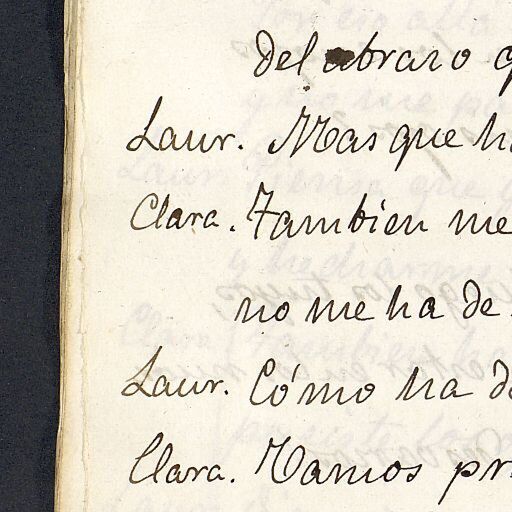 del abrazo q
Laur. Mas que ha
Clara. Tambien me
no me ha de
Laur. Cómo ha de
Clara. Vamos pr